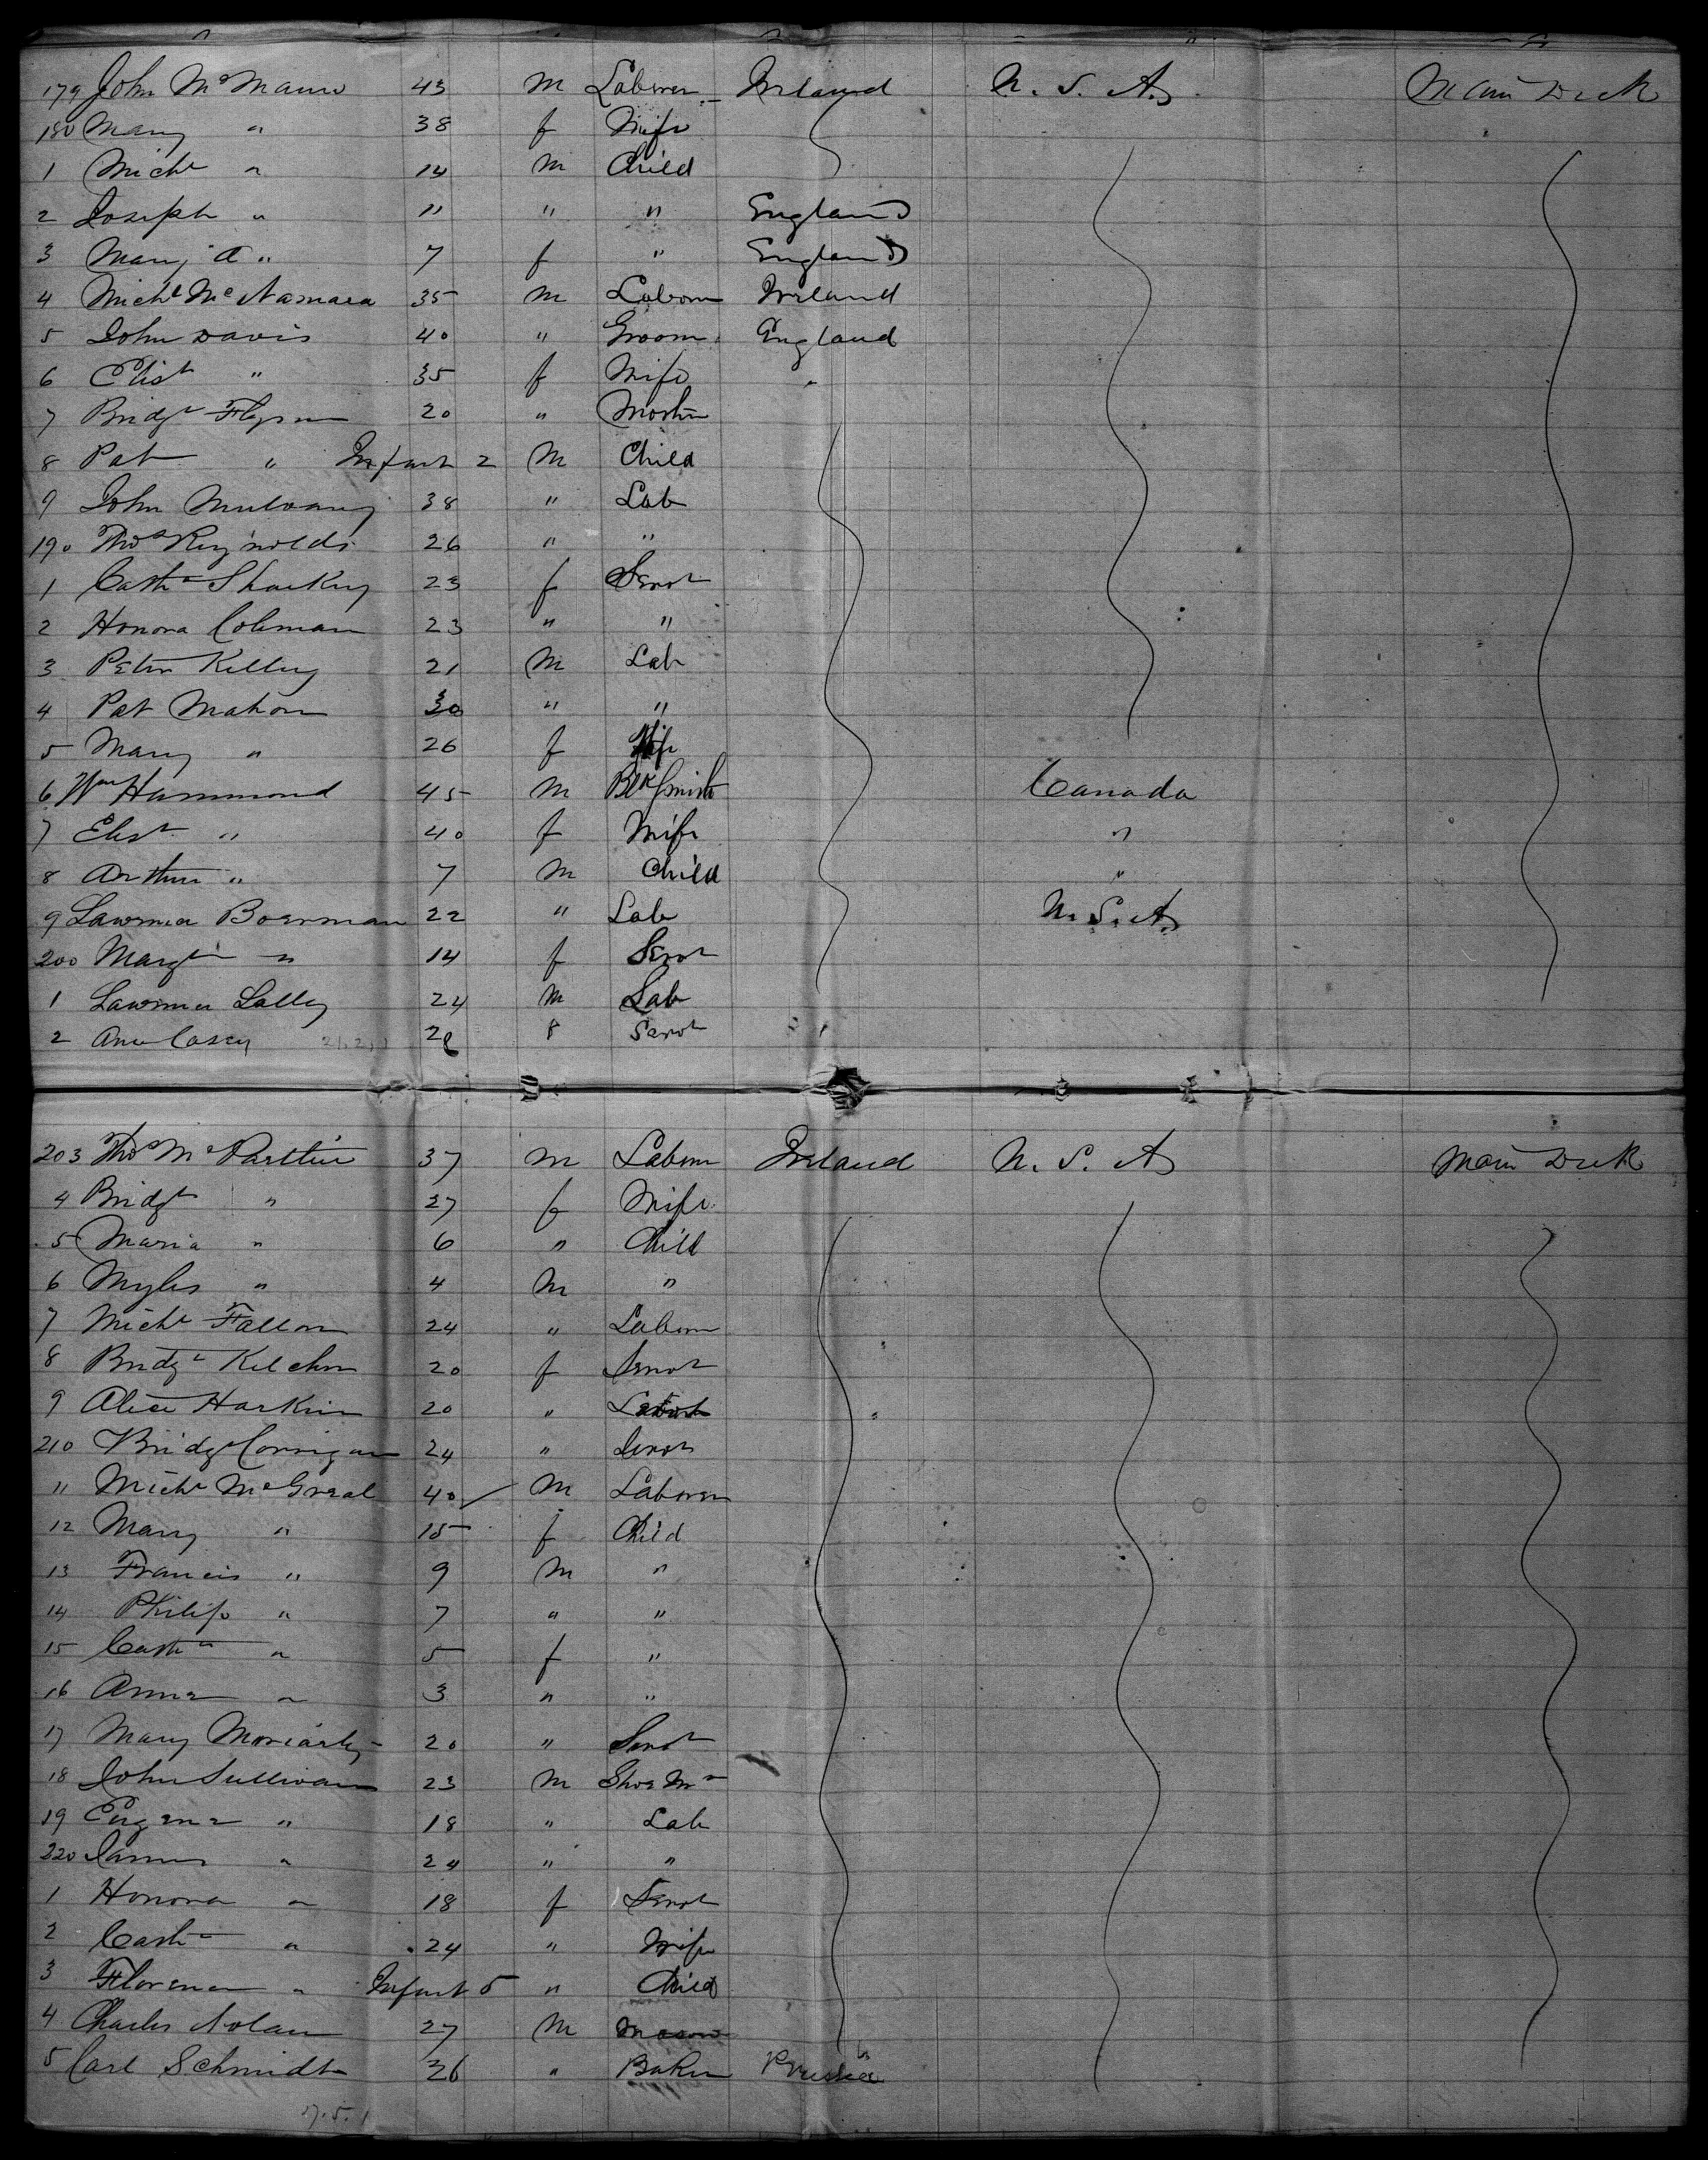 179 John McManus 43 m Laborer Ireland U. S. A. Main Deck
180 Mary " 38 f Wife
1 Michl " 14 m Child
2 Joseph " 11 " " England
3 Mary A " 7 f " England
4 Michl McNamara 35 m Laborer Ireland
5 John Davis 40 " Groom England
6 Elisth " 35 f Wife "
7 Bridgt Flynn 20 "
8 Pat " Infant 2 M Child
9 John Mulvany 38 " Lab
190 Thos Reynolds 26 " "
1 Cathe Sharkey 23 f Servt
2 Honora Coleman 23 " "
3 Peter Kelley 21 M Lab
4 Pat Mahon 30 " "
5 Mary " 26 f Wife
6 Wm Hammond 45 M BlkSmith Canada
7 Elist " 40 f Wife "
8 Arthur " 7 M Child "
9 Lawrence Boerman 22 " Lab U. S. A.
200 Margt " 14 f Servt
1 Lawrence Lally 24 M Lab
2 Ann Casey 28 f Servt
203 Thos McPartlin 37 m Laborer Ireland U. S. A. Main Deck
4 Bridgt " 27 f Wife
5 Maria " 6 " Child
6 Myles " 4 M "
7 Michl Fallon 24 " Laborer
8 Bridgt 20 f Servt
9 Alice Harkin 20 "
210 Bridgt Corrigan 24 " Servt
11 Michl McGreal 40 M Laborer
12 Mary " 15 f Child
13 Francis " 9 M "
14 Philip " 7 " "
15 Cathe " 5 f "
16 Anne " 3 " "
17 Mary Moriarty 20 " Servt
18 John Sullivan 23 M Shoe Mr
19 Eugene " 18 " Lab
220 James " 24 " "
1 Honora " 18 f Servt
2 Cathe " 24 " Wife
3 Florence " Infant 5 " Child
4 Charles Nolan 27 M Mason
5 Carl Schmidt 26 " Baker Prussia